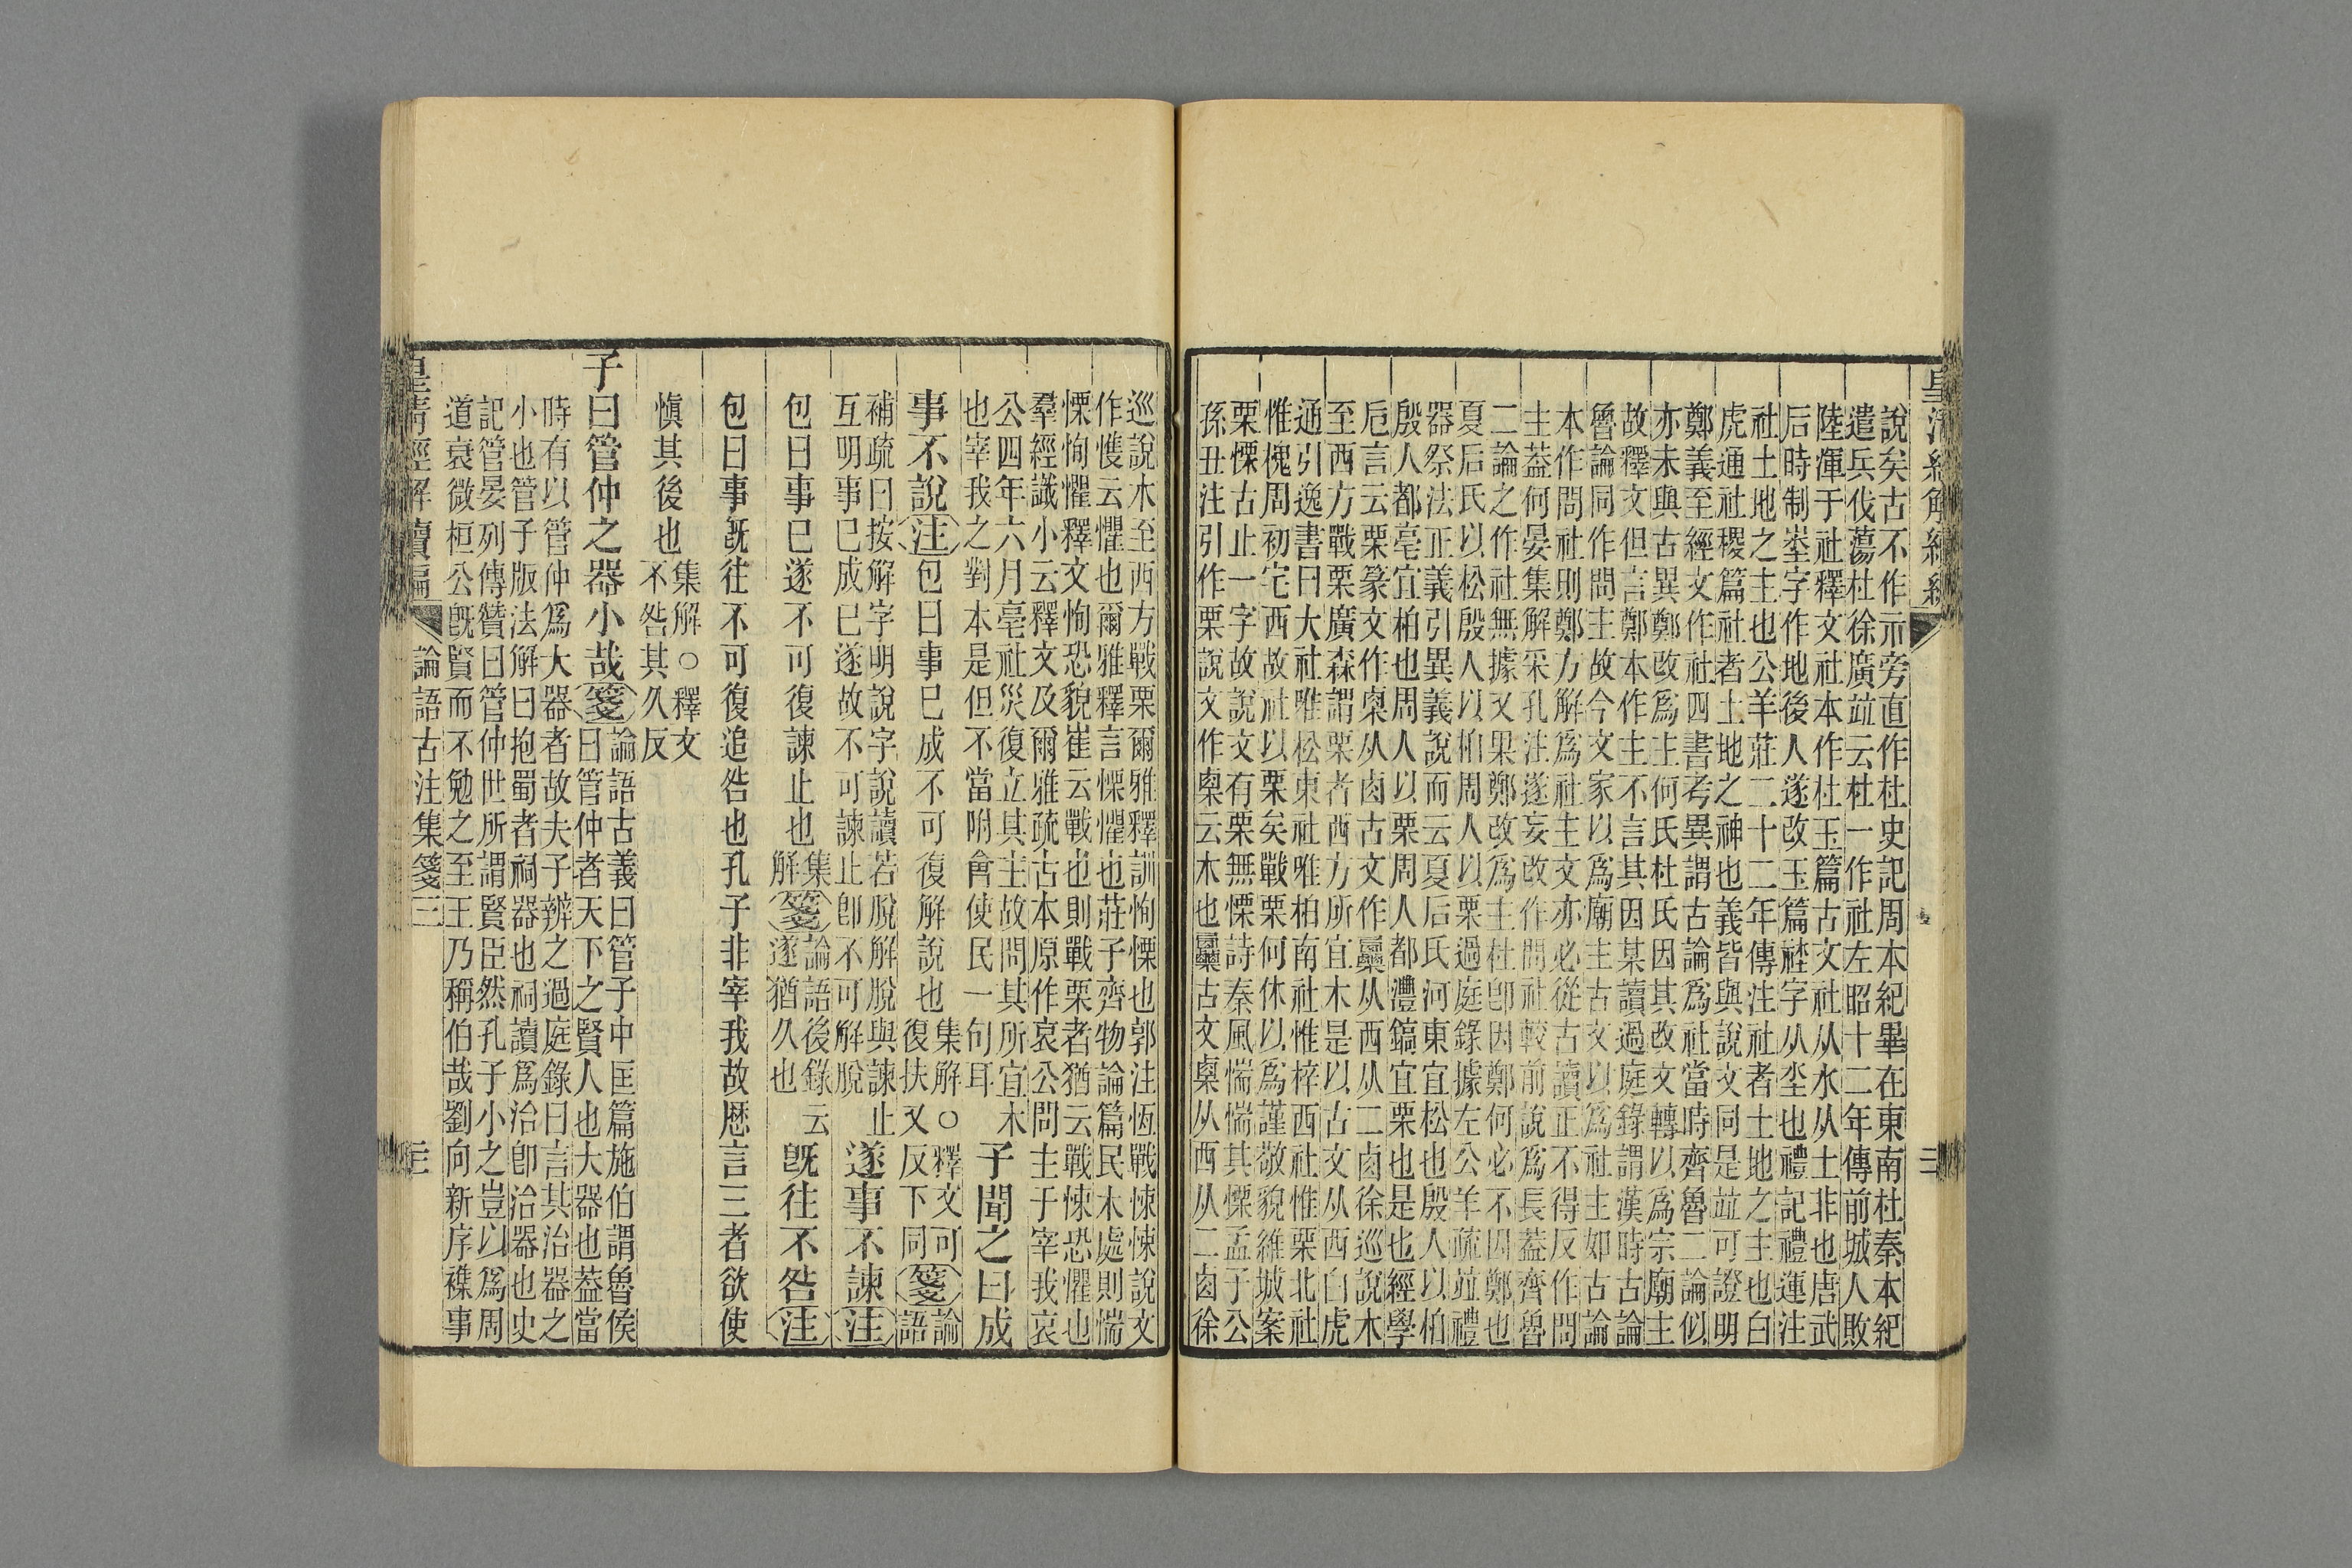 說矣古不作示旁直作杜史記周本紀畢在東南杜秦本紀
遣兵伐蕩杜徐廣竝云杜一作社左昭十二年傳前城人敗
陸渾于社釋文社本作杜玉篇古文社从水从土非也唐武
后時制埊字作地後人遂改玉篇𥙭字从坔也禮記禮運注
社土地之主也公羊莊二十二年傳注社者土地之主也白
虎通社稷篇社者土地之神也義皆與說文同是竝可證明
鄭義至經文作社四書考異謂古論爲社當時齊魯二論似
亦未與古異鄭改爲主何氏杜氏因其改文轉以爲宗廟主
故釋文但言鄭本作主不言其因某讀過庭錄謂漢時古論
魯論同作問主故今文家以爲廟主古文以爲社主如古論
本作問社則鄭方解爲社主文亦必從古讀正不得反作問
主葢何晏集解采孔注遂妄改作問社較前說爲長葢齊魯
二論之作社無據又果鄭改爲主杜卽因鄭何必不因鄭也
夏后氏以松殷人以柏周人以栗過庭錄據左公羊疏竝禮
器祭法正義引異義說而云夏后氏河東宜松也殷人以柏
殷人都亳宜柏也周人以栗周人都灃鎬宜栗也是也經學
卮言云栗篆文作㮚从卤古文作𣡼从西从二卤徐巡說木
至西方戰栗廣森謂栗者西方所宜木是以古文从西白虎
通引逸書曰大社唯松東社唯柏南社惟梓西社惟栗北社
惟槐周初宅西故社以栗矣戰栗何休以爲謹敬貌維城案
栗慄古止一字故說文有栗無慄詩秦風惴惴其慄孟子公
孫丑注引作栗說文作㮚云木也𣡼古文㮚从西从二卤徐
巡說木至西方戰栗爾雅釋訓恂慄也郭注恆戰悚悚說文
作愯云懼也爾雅釋言慄懼也莊子齊物論篇民木處則惴
慄恂懼釋文恂恐貌崔云戰也則戰栗者猶云戰悚恐懼也
羣經識小云釋文及爾雅疏古本原作哀公問主于宰我哀
公四年六月亳社災復立其主故問其所宜木
也宰我之對本是但不當附會使民一句耳
子聞之曰成
事不說注包曰事已成不可復解說也集解○釋文可
復扶又反下同箋論語
補疏曰按解字明說字說讀若脫解脫與諫止
互明事已成已遂故不可諫止卽不可解脫
遂事不諫注
包曰事已遂不可復諫止也集解箋論語後錄云
遂猶久也
旣往不咎注
包曰事旣往不可復追咎也孔子非宰我故歷言三者欲使
愼其後也集解○釋文
不咎其久反
子曰管仲之器小哉箋論語古義曰管子中匡篇施伯謂魯侯
曰管仲者天下之賢人也大器也葢當
時有以管仲爲大器者故夫子辨之過庭錄曰言其治器之
小也管子版法解曰抱蜀者祠器也祠讀爲治卽治器也史
記管晏列傳贊曰管仲世所謂賢臣然孔子小之豈以爲周
道衰微桓公旣賢而不勉之至王乃稱伯哉劉向新序襍事
皇清經解續編
論語古注集箋三
三